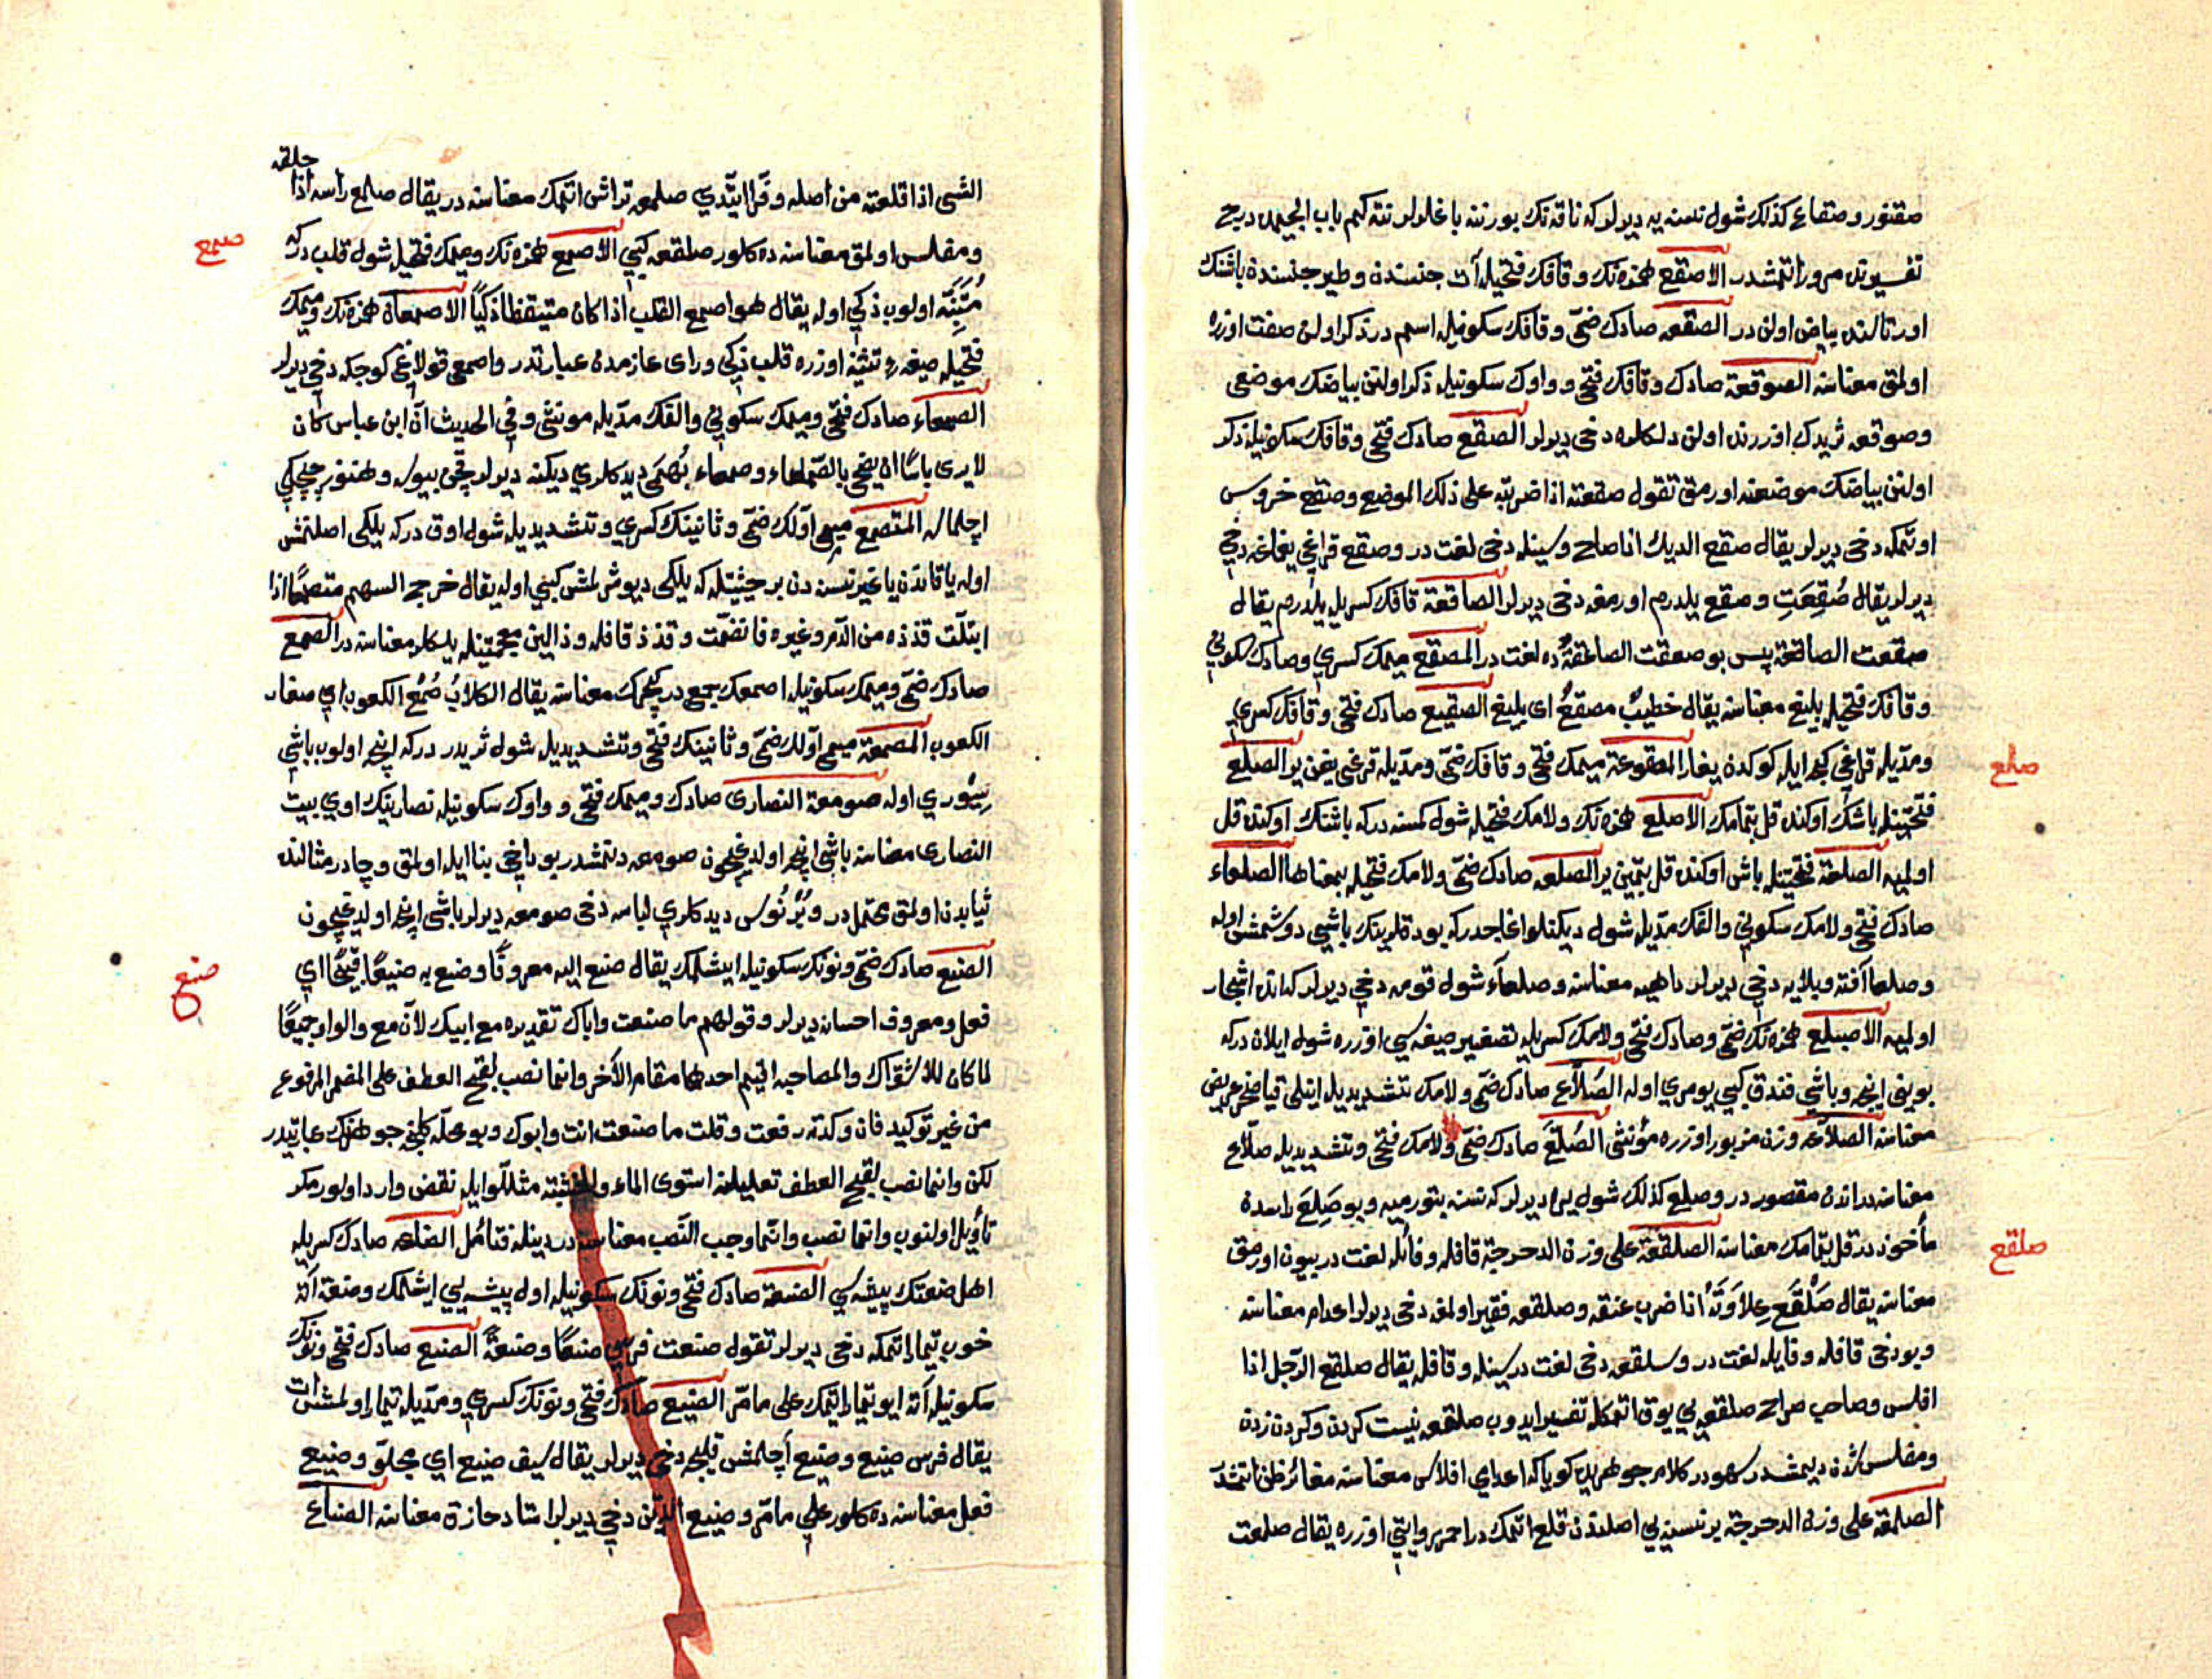 صقنور وصقاع كذلك شول نسنه يه ديرلر كه ناقه نك بورننه باغلرلر نته كم باب الجيمده درج
تفسيرنى مرور اتمشدر الاصقع همزه نك وقافك فتحيله آت جنسنده وطير جنسنده باشنك
اورتالنده بياض اولن در الصقعه صادك ضمى وقافك سكونيله اسم در ذكر اولن صفت اوزره
اولمق معناسنه الصوقعة صادك وقافك فتحى وواوك سكونيله ذكر اولنن بياضك موضعى
وصوقعه ثريدك اوزرنده اولن دلكلره دخى ديرلر الصقع صادك فتحى وقافك سكونيله ذكر
اولنن بياضك موضعنه اورمق تقول صقعته اذا ضربته على ذلك الموضع وصقع خروس
اوتمكه دخى ديرلر يقال صقع الديك اذا صاح وسينله دخى لغت در وصقع قراغى يغماغه دخى
ديرلر يقال صُقِعَتِ وصقع يلدرم اورمغه دخى ديرلر الصاقعة قافك كسريله يلدرم يقال
صقعت الصاقعة پس بو صعقت الصاعقةُ ده لغت در المصقع ميمك كسرى وصادك سكونى
وقافك فتحيله بليغ معناسنه يقال خطيبٌ مصقعٌ اى بليغ الصقيع صادك فتحى وقافك كسرى
ومدّيله قراغى كيجه ايله كوكدن يغار المصقوعة ميمك فتحى وقافك ضمى ومدّيله قرغى يغن ير الصلع
صلع
فتحتينله باشك اوكنده قل بتمامك الاصلع همزه نك ولامك فتحيله شول كمسنه دركه باشنك اوكنده قل
اولميه الصلعة فتحتينله باش اوكنده قل بتمين ير الصلعه صادك ضمى ولامك فتحيله بمعناها الصلعاء
صادك فتحى ولامك سكونى والفك مدّيله شول ديكنلو اغاجدركه بوداقلرينك باشى دوشمش اوله
وصلعا آفته وبلايه دخى ديرلر داهيه معناسنه وصلعاء شول قومه دخى ديرلر كه انده اشجار
اولميه الاصيلع همزه نك ضمى وصادك فتحى ولامك كسريله تصغير صيغه سى اوزره شول ايلان دركه
بوينى اينجه وباشى فندق كبى يومرى اوله الصُلاّع صادك ضمى ولامك تشديديله اينلى قيا صخر عريض
معناسنه الصلاّعه وزن مزبور اوزره مؤنثى الصُلّعَ صادك ضمى ولامك فتحى وتشديديله صلاّع
معناسنه در اندن مقصور در وصلع كذلك شول يره ديرلر كه نسنه بتورميه وبو صَلِعَ راسده
مأخوذ در قل بتمامك معناسنه الصلقعة على وزن الدحرجة قافله وفائله لغت در بيون اورمق
صلقع
معناسنه يقال صَلْقَع عِلاَوَتَهُ اذا ضرب عنقه وصلقعه فقير اولمغه دخى ديرلر اعدام معناسنه
وبو دخى قافله وفايله لغت در وسلقعه دخى لغت در سينله وقافله يقال صلقع الرجل اذا
افلس وصاحب صراح صلقعه يى يوق اتمكله تفسير ايدوب صلقعه نيست كردن وكردن زدن
ومفلس شدن ديمشدر سهو در كلام جوهريده كويا كه اعدامى افلاس معناسنه مغاير ظن اتمشدر
الصلمعة على وزن الدحرجة بر نسنه يى اصلندن قلع اتمكدر احمر روايتى اوزره يقال صلمعت
الشى اذا قلعته من اصله وفرا ايتدى صلمعه تراش اتمك معناسنه در يقال صلمع رأسه اذا حلقه
ومفلس اولمق معناسنه ده كلور صلقعه كبى الاصمع همزه نك وميمك فتحيله شول قلب دركه
صمع
مُتَنَبِّه اولوب ذكى اوله يقال هو اصمع القلب اذا كان متيقظا ذكيّا الاصمعان همزه نك وميمك
فتحيله صيغه ء تثنيه اوزره قلب ذكى وراى عازمدن عبارتدر واصمعى قولاغى كوجكه دخى ديرلر
الصمعاء صادك فتحى وميمك سكونى والفك مدّيله مونثى وفى الحديث انّ ابن عباس كان
لا يرى باسًا ان يضحى بالصّمعاء وصمعاء بُهْمَى ديدكلرى ديكنه ديرلر قچن بيويه وهنوز چچكى
اچلمامه المتصمع ميمى اوّلك ضمى وثانينك كسرى وتشديديله شول اوق دركه يلكى اصلنمش
اوله يا قاندن يا غير نسنه دن بر حيثيتله كه يلكى ديوشرلمش كبى اوله يقال خرج السهم متصمعًا اذا
ابتلّت قذذه من الدم وغيره فانضمّت وقذذ قافله وذالين معجمتينله يلكلر معناسنه در الصمع
صادك ضمى وميمك سكونيله اصمعك جمعى در كچرك معناسنه يقال الكلابُ صُمْعُ الكعوب اى صغار
الكعوب المصمعة ميمى اوّلك ضمى وثانينك فتحى وتشديديله شول ثريدر دركه اينجه اولوب باشى
سِيْورى اوله صومعة النصارى صادك وميمك فتحى وواوك سكونيله نصارينك اوى بيت
النصارى معناسنه باشى اينجه اولديغيچون صومعه دنمشدر بو داخى بنا ايله اولمق وچادر مثالنده
ثيابدن اولمق محتملدر وبُرْنُوس ديدكلرى لباسه دخى صومعه ديرلر باشى اينجه اولديغيچون
الصنع صادك ضمى ونونك سكونيله ايشلمك يقال صنع اليه معروفًا وصنع به صنيعًا قبيحًا اى
صنع
فعل ومعروف احسانه ديرلر وقولهم ما صنعت واباك تقديره مع ابيك لانّ مع والواو جميعًا
لما كان للاشتراك والمصاحبة اقيم احدهما مقام الآخر وانما نصب لقبح العطف على المضمر المرفوع
من غير توكيد فان وكدته رفعت وقلت ما صنعت انت وابوك وبو محلّه كلنجه جوهرينك عبارتيدر
لكن وانما نصب لقبح العطف تعليلنه استوى الماء والخشبة مثللو ايله نقض وارد اولور مكر
تأويل اولنوب وانما نصب وانّما وجب النّصب معناسنه در دينله فتأمل الصناعه صادك كسريله
اهل صنعتك پيشه سى الصنعة صادك فتحى ونونك سكونيله اول پيشه يى ايشلمك وصنعة آته
خوب تيمار اتمكه دخى ديرلر تقول صنعت فرسى صنعًا وصنعةً الصنع صادك فتحى ونونك
سكونيله آته ايو تيمار اتمك على ما مرّ الصنيع صادك فتحى ونونك كسرى ومدّيله تيمار اولمش آت
يقال فرس صنيع وصنيع اچلمش قليجه دخى ديرلر يقال سيف صنيع اى مجلوّ وصنيع
فعل معناسنه ده كلور على ما مرّ وصنيع اليدن دخى ديرلر استاد حازق معناسنه الصناع